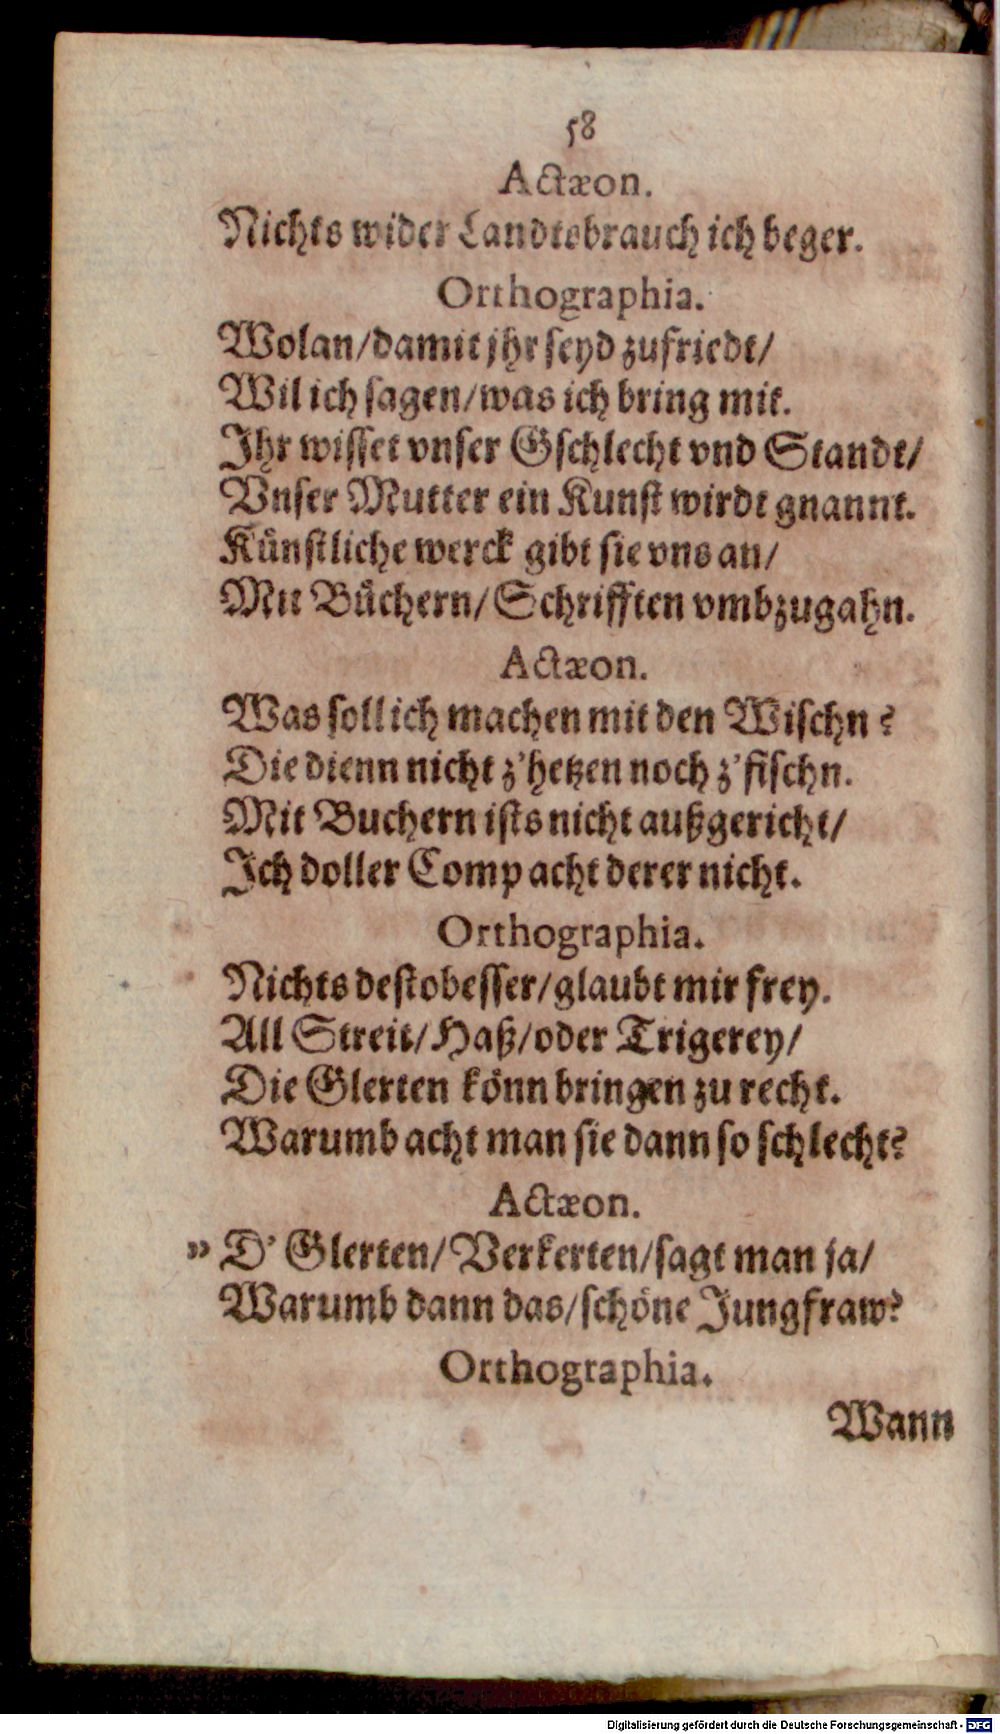 58
Actæon.
Nichts wider Landtsbrauch ich beger.
Orthographia.
Wolan/damit jhr seyd zufriedt/
Wil ich sagen/was ich bring mit.
Ihr wisset vnser Gschlecht vnd Standt/
Vnser Mutter ein Kunst wirdt gnannt.
Künstliche werck gibt sie vns an/
Mit Büchern/Schrifften vmbzugahn.
Actæon.
Was soll ich machen mit den Wischn?
Die dienn nicht z'hetzen noch z'fischn.
Mit Buchern ists nicht außgericht/
Ich doller Comp acht derer nicht.
Orthographia.
Nichts destobesser/glaubt mir frey.
All Streit/Haß/oder Trigerey/
Die Glerten könn bringen zu recht.
Warumb acht man sie dann so schlecht?
Actæon.
» D' Glerten/Verkerten/sagt man ja/
Warumb dann das/schöne Jungfraw?
Orthographia.
Wann
Digitalisierung gefördert durch die Deutsche Forschungsgemeinschaft - DFG